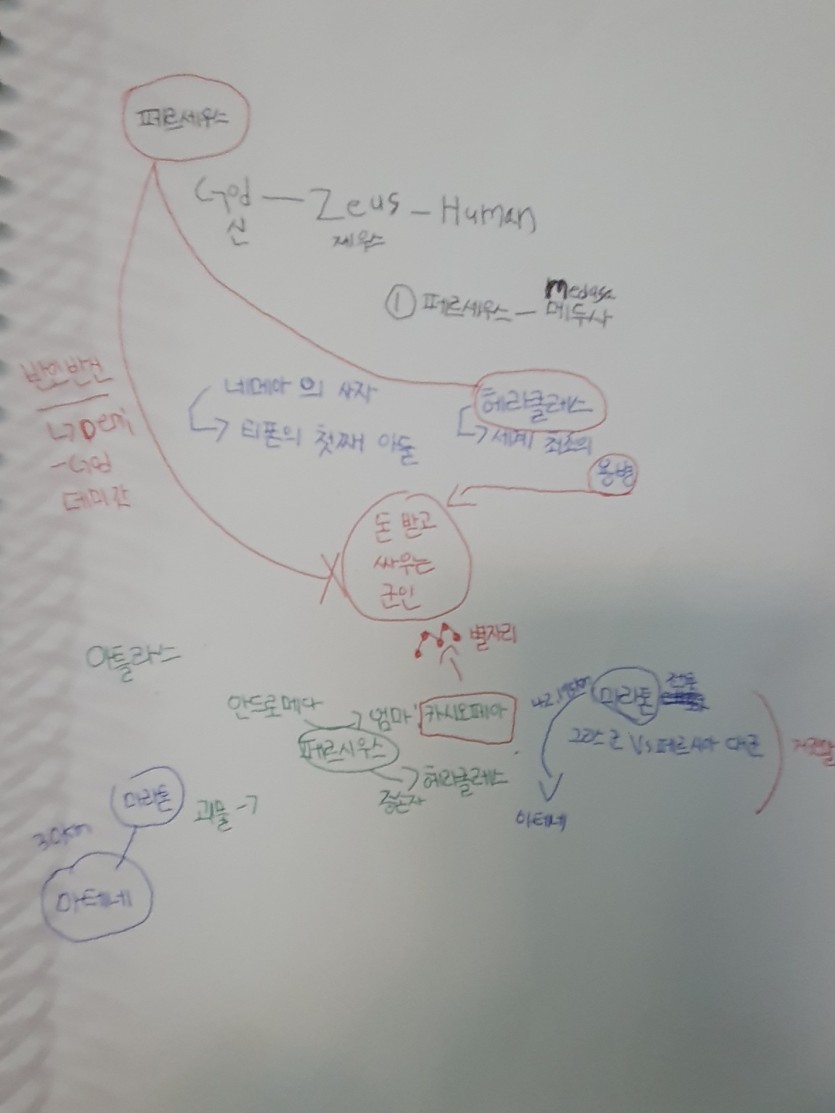 페르세우스
God — Zeus - Human
신
제우스
① 페르세우스 — 메두사
Medusa
반인반신
↳ Demi
-God
데미갓
네메아의 사자
↳ 티폰의 첫째 아들
헤라클레스
↳ 세계 최초의
용병
돈 받고
싸우는
군인
별자리
아틀라스
안드로메다 → 엄마 카시오페아
페르시우스
→ 헤라클레스
증손자
42.195km
마라톤 전투
그리스군 Vs 페르시아 대군
아테네
마라톤
괴물 -7
30km
아테네